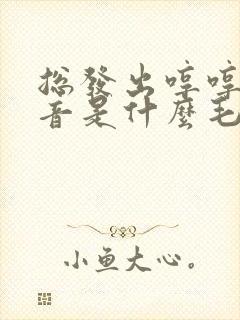 總發出哼哼
音是什麼毛
小魚大心。